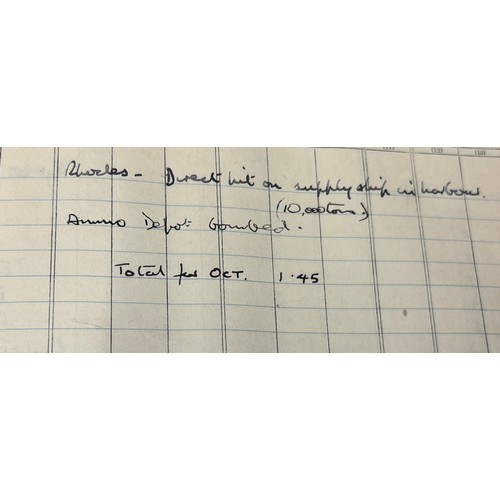 Rhodes - Direct hit on supply ship in harbour.
(10,000 tons)
Ammo Depot bombed.
Total for OCT. 1.45